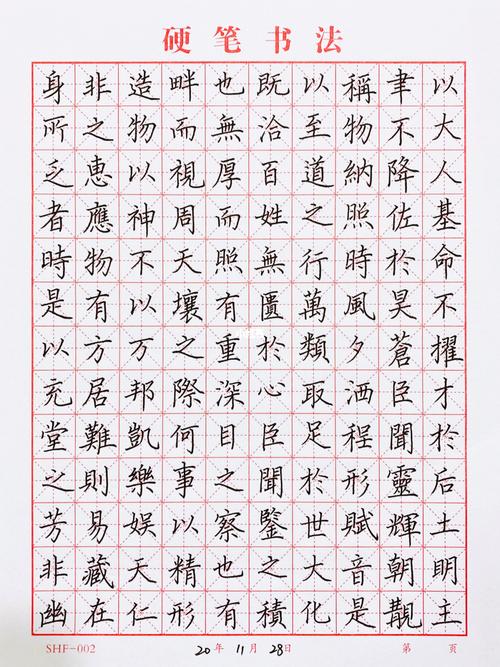 硬笔书法
以大人基命不擢才於后土明主
聿不降佐於昊蒼臣聞靈輝朝覯
稱物納照時風夕洒程形賦音是
以至道之行萬類取足於世大化
既洽百姓無匱於心臣聞鑒之積
也無厚而照有重深目之察也有
畔而視周天壤之際何事以精形
造物以神不以万邦凱樂娛天仁
非之惠應物有方居難則易藏在
身所乏者時是以充堂之芳非幽
SHF-002 20年11月28日 第 页